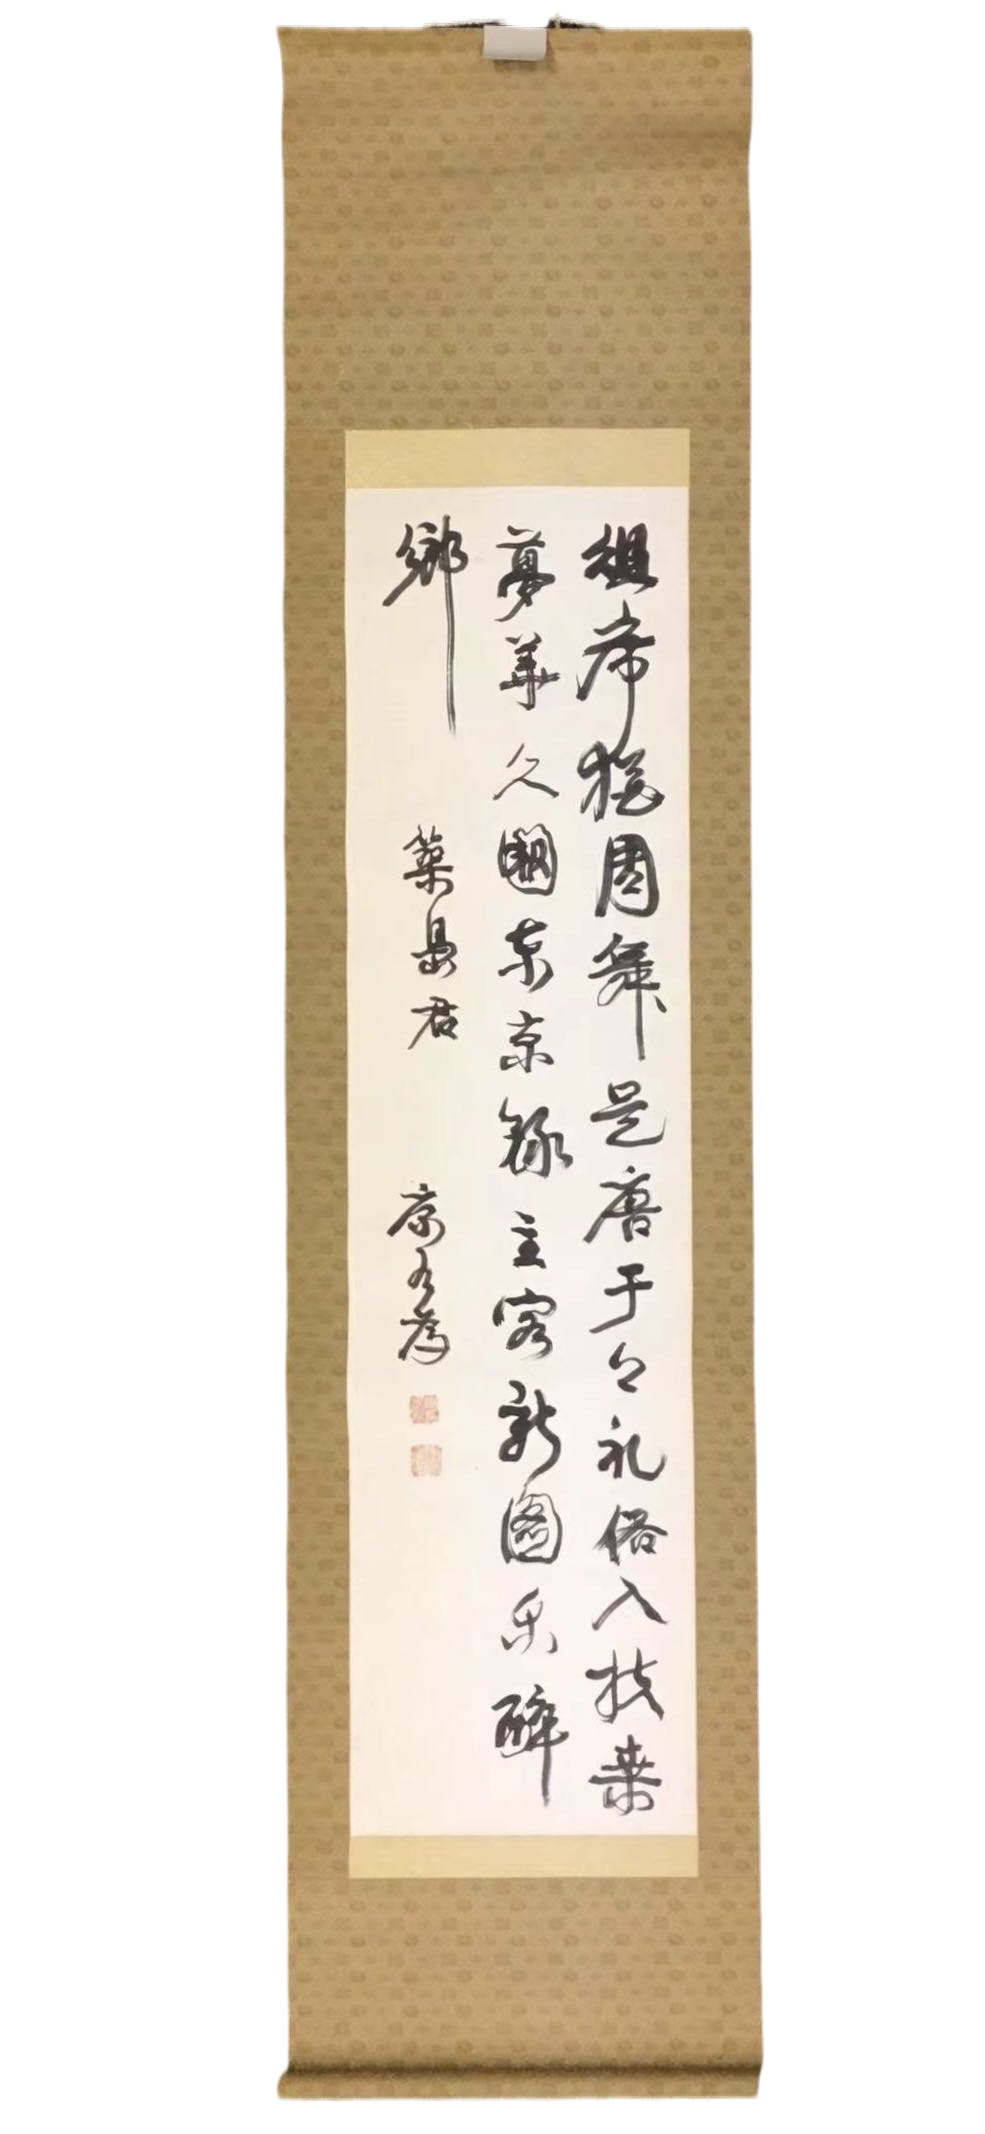 俎席猶周舞是唐于今礼俗入扶桑
夢華久東京錄主客新圖乐醉
鄉
築君
康有為